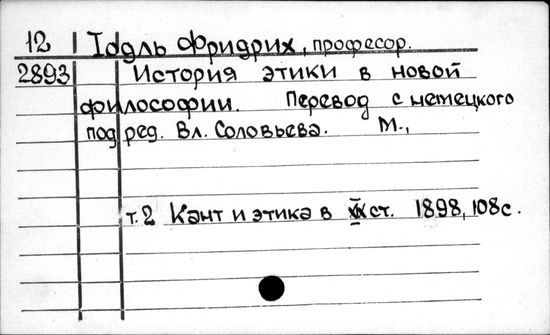 12 Iодль Фридрих, професор.
2893 История этики в новой
философии. Перевод с немецкого
под ред. Вл. Соловьева. М.,
т.2 Кант и этика в XIX ст. 1898, 108с.